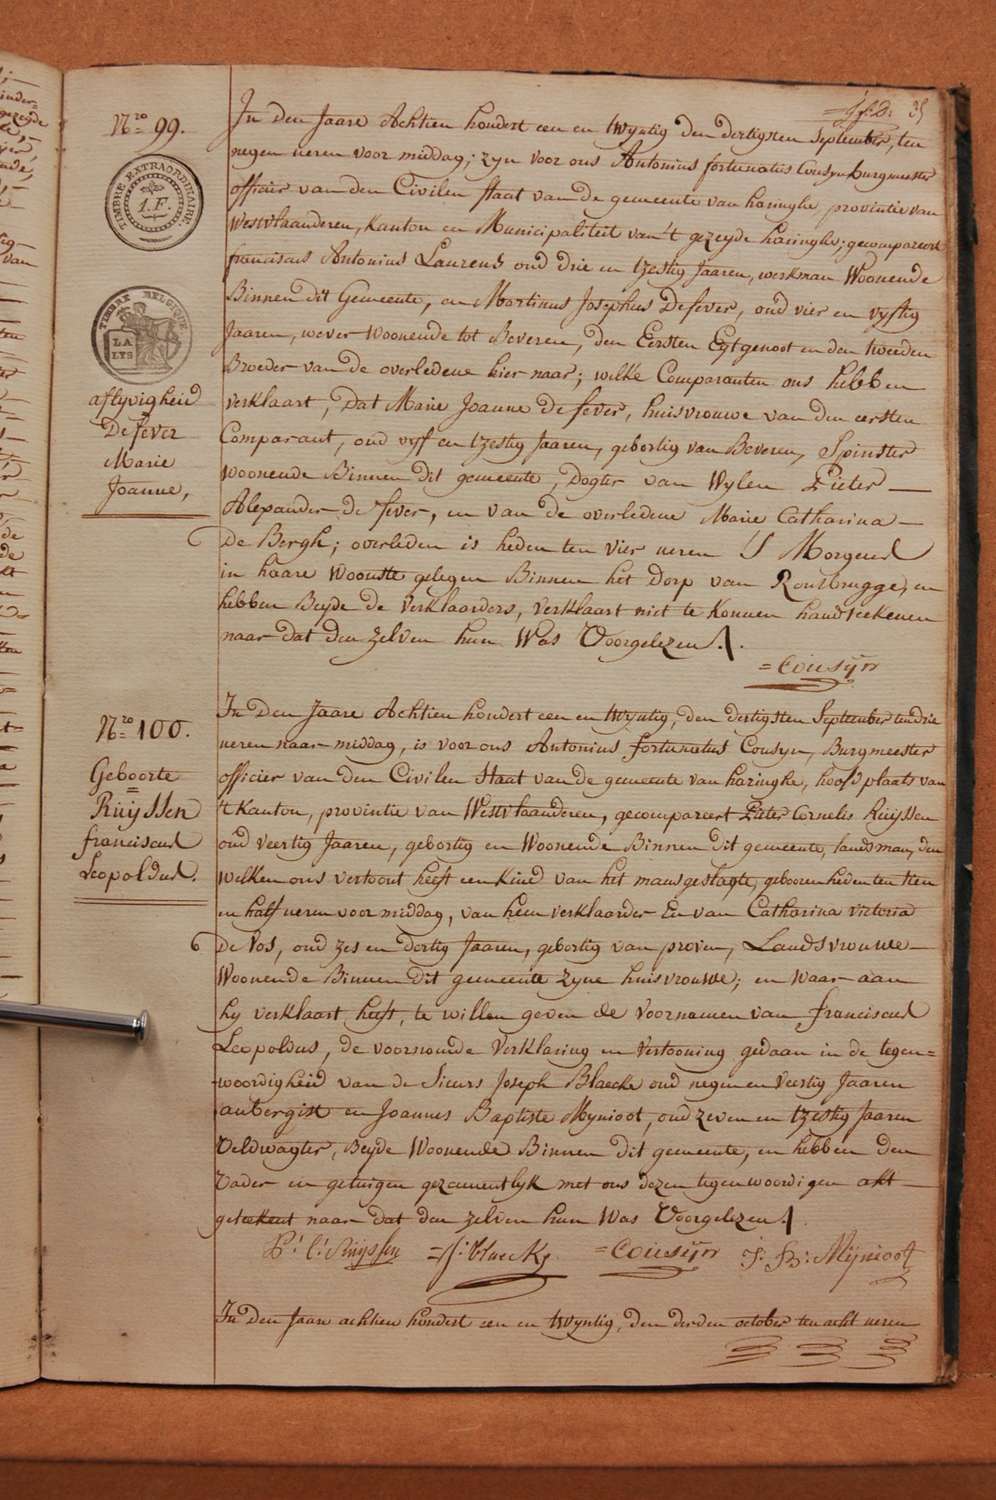 35
Nro 99.
TIMBRE EXTRAORDINAIRE.
1.F.
TIMBRE BELGIQUE
LA
LYS
aflyvigheid
De fever
Marie
Joanne,
In den Jaare Achtien hondert een en twyntig den dertigsten September, ten
negen uren voor middag; zyn voor ons Antonius fortunatus Cousyn burgmeester
officier van den Civilen staat van de gemeente van haringhe, provintie van
Westvlaanderen, Kanton en Municipaliteit van 't gezeyde haringhe; gecompareert
franciscus Antonius Laurens oud drie en tzestig Jaaren, werkman Woonende
Binnen dit Gemeente, en Martinus Josephus Defever, oud vier en vyftig
Jaaren, wever woonende tot Beveren, den Eersten Egtgenoot en den tweeden
Broeder van de overledene hier naar; welke Comparanten ons hebben
verklaart, Dat Marie Joanne de fever, huisvrouwe van den eersten
Comparant, oud vyf en tzestig Jaaren, gebortig van Beveren, Spinster
woonende Binnen dit gemeente, Dogter van Wylen Pieter
Alexander de fever, en van de overledene Marie Catharina
De Bergh; overleden is heden ten vier uren 'S Morgens
in haare Woonste gelegen Binnen het Dorp van Rousbrugge, en
hebben Beyde de verklaarders, verklaart niet te konnen handteekenen
naar dat den zelven hun Was Voorgelezen.
= Cousyn
Nro 100.
Geboorte
=
Ruyssen
franciscus
Leopoldus.
In Den Jaare Achtien hondert een en twyntig, den dertigsten September ten drie
uren naar middag, is voor ons Antonius fortunatus Cousyn, Burgmeester
officier van den Civilen Staat van de gemeente van haringhe, hoofd plaats van
't Kanton, provintie van Westvlaanderen, gecompareert Pieter Cornelis Ruyssen
oud veertig Jaaren, gebortig en Woonende Binnen dit gemeente, landman, den
welken ons vertoont heeft een kind van het mansgeslagte, gebooren heden ten tien
en half uren voor middag, van hem verklaarder En van Catharina victoria
De Vos, oud zes en dertig Jaaren, gebortig van proven, Landsvrouwe
Woonende Binnen Dit gemeente zyne huisvrouwe; en waar aan
hy verklaart heeft, te willen geven de voornamen van franciscus
Leopoldus, de voornoemde verklaring en vertooning gedaan in de tegen=
woordigheid van de Sieurs Joseph Blaecke oud negen en veertig Jaaren
aubergist en Joannes Baptiste Mynioot, oud zeven en tzestig Jaaren
Veldwagter, Beyde Woonende Binnen dit gemeente, en hebben den
Vader en getuigen gezamentlyk met ons dezen tegenwoordigen akt
geteekent naar dat den zelven hun Was Voorgelezen.
P: C: Ruyssen = J: Blaecke = Cousyn J: B: Mynioot
In Den Jaare achtien hondert een en twyntig, den derden october ten acht uren